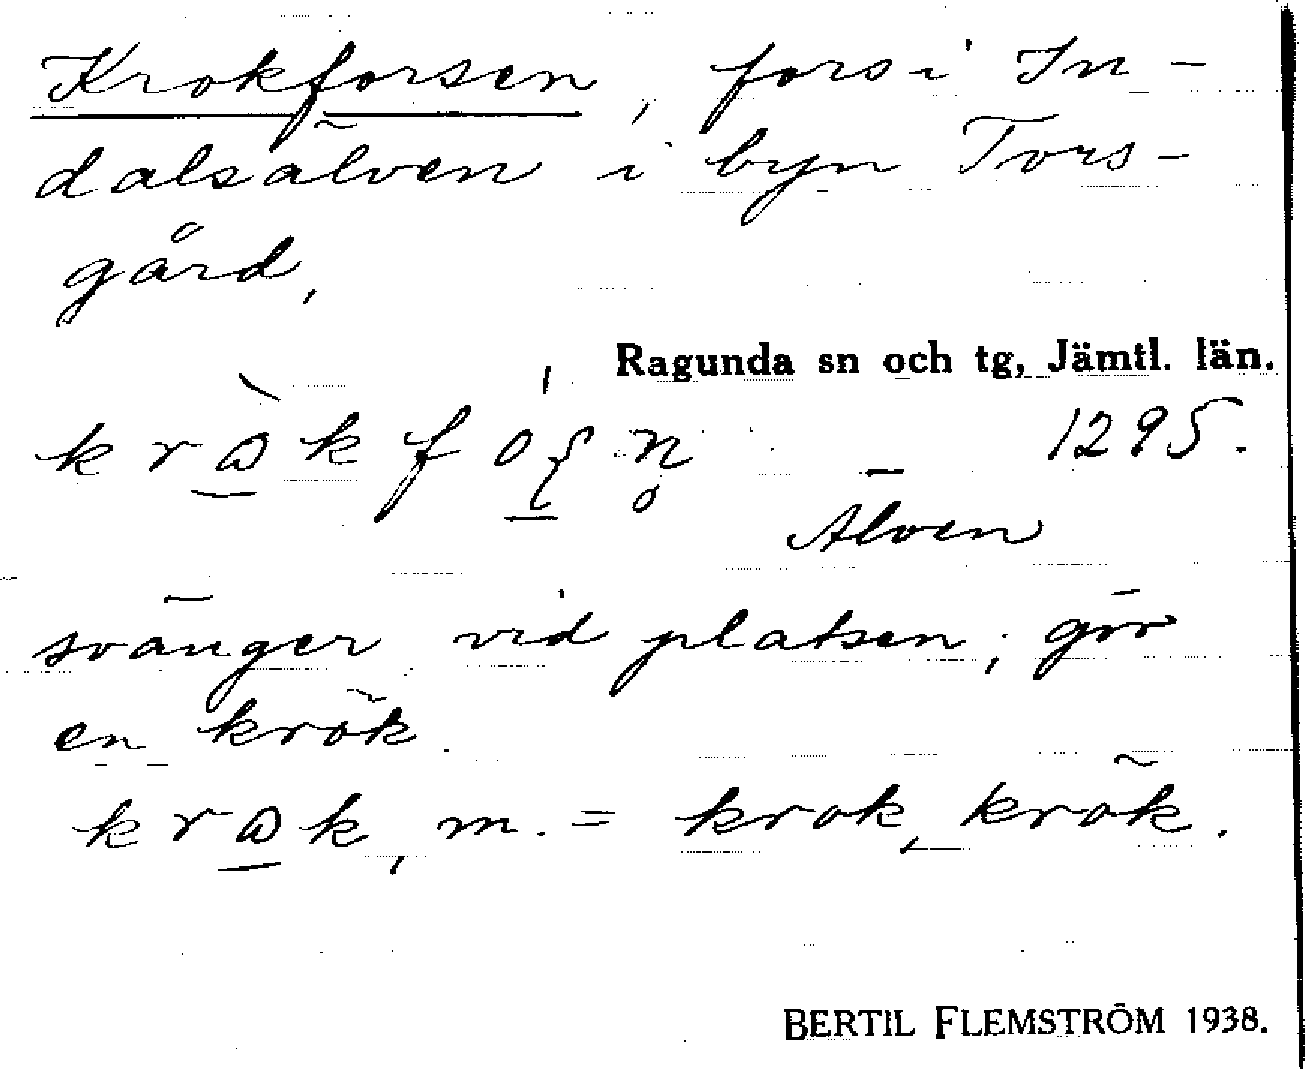 Krokforsen, fors i In-
dalsälven i byn Tors-
gård,
Ragunda sn och tg, Jämtl. län.
1295.
Älven
svänger vid platsen; gör
en krök.
m. = krok, krök.
BERTIL FLEMSTRÖM 1938.